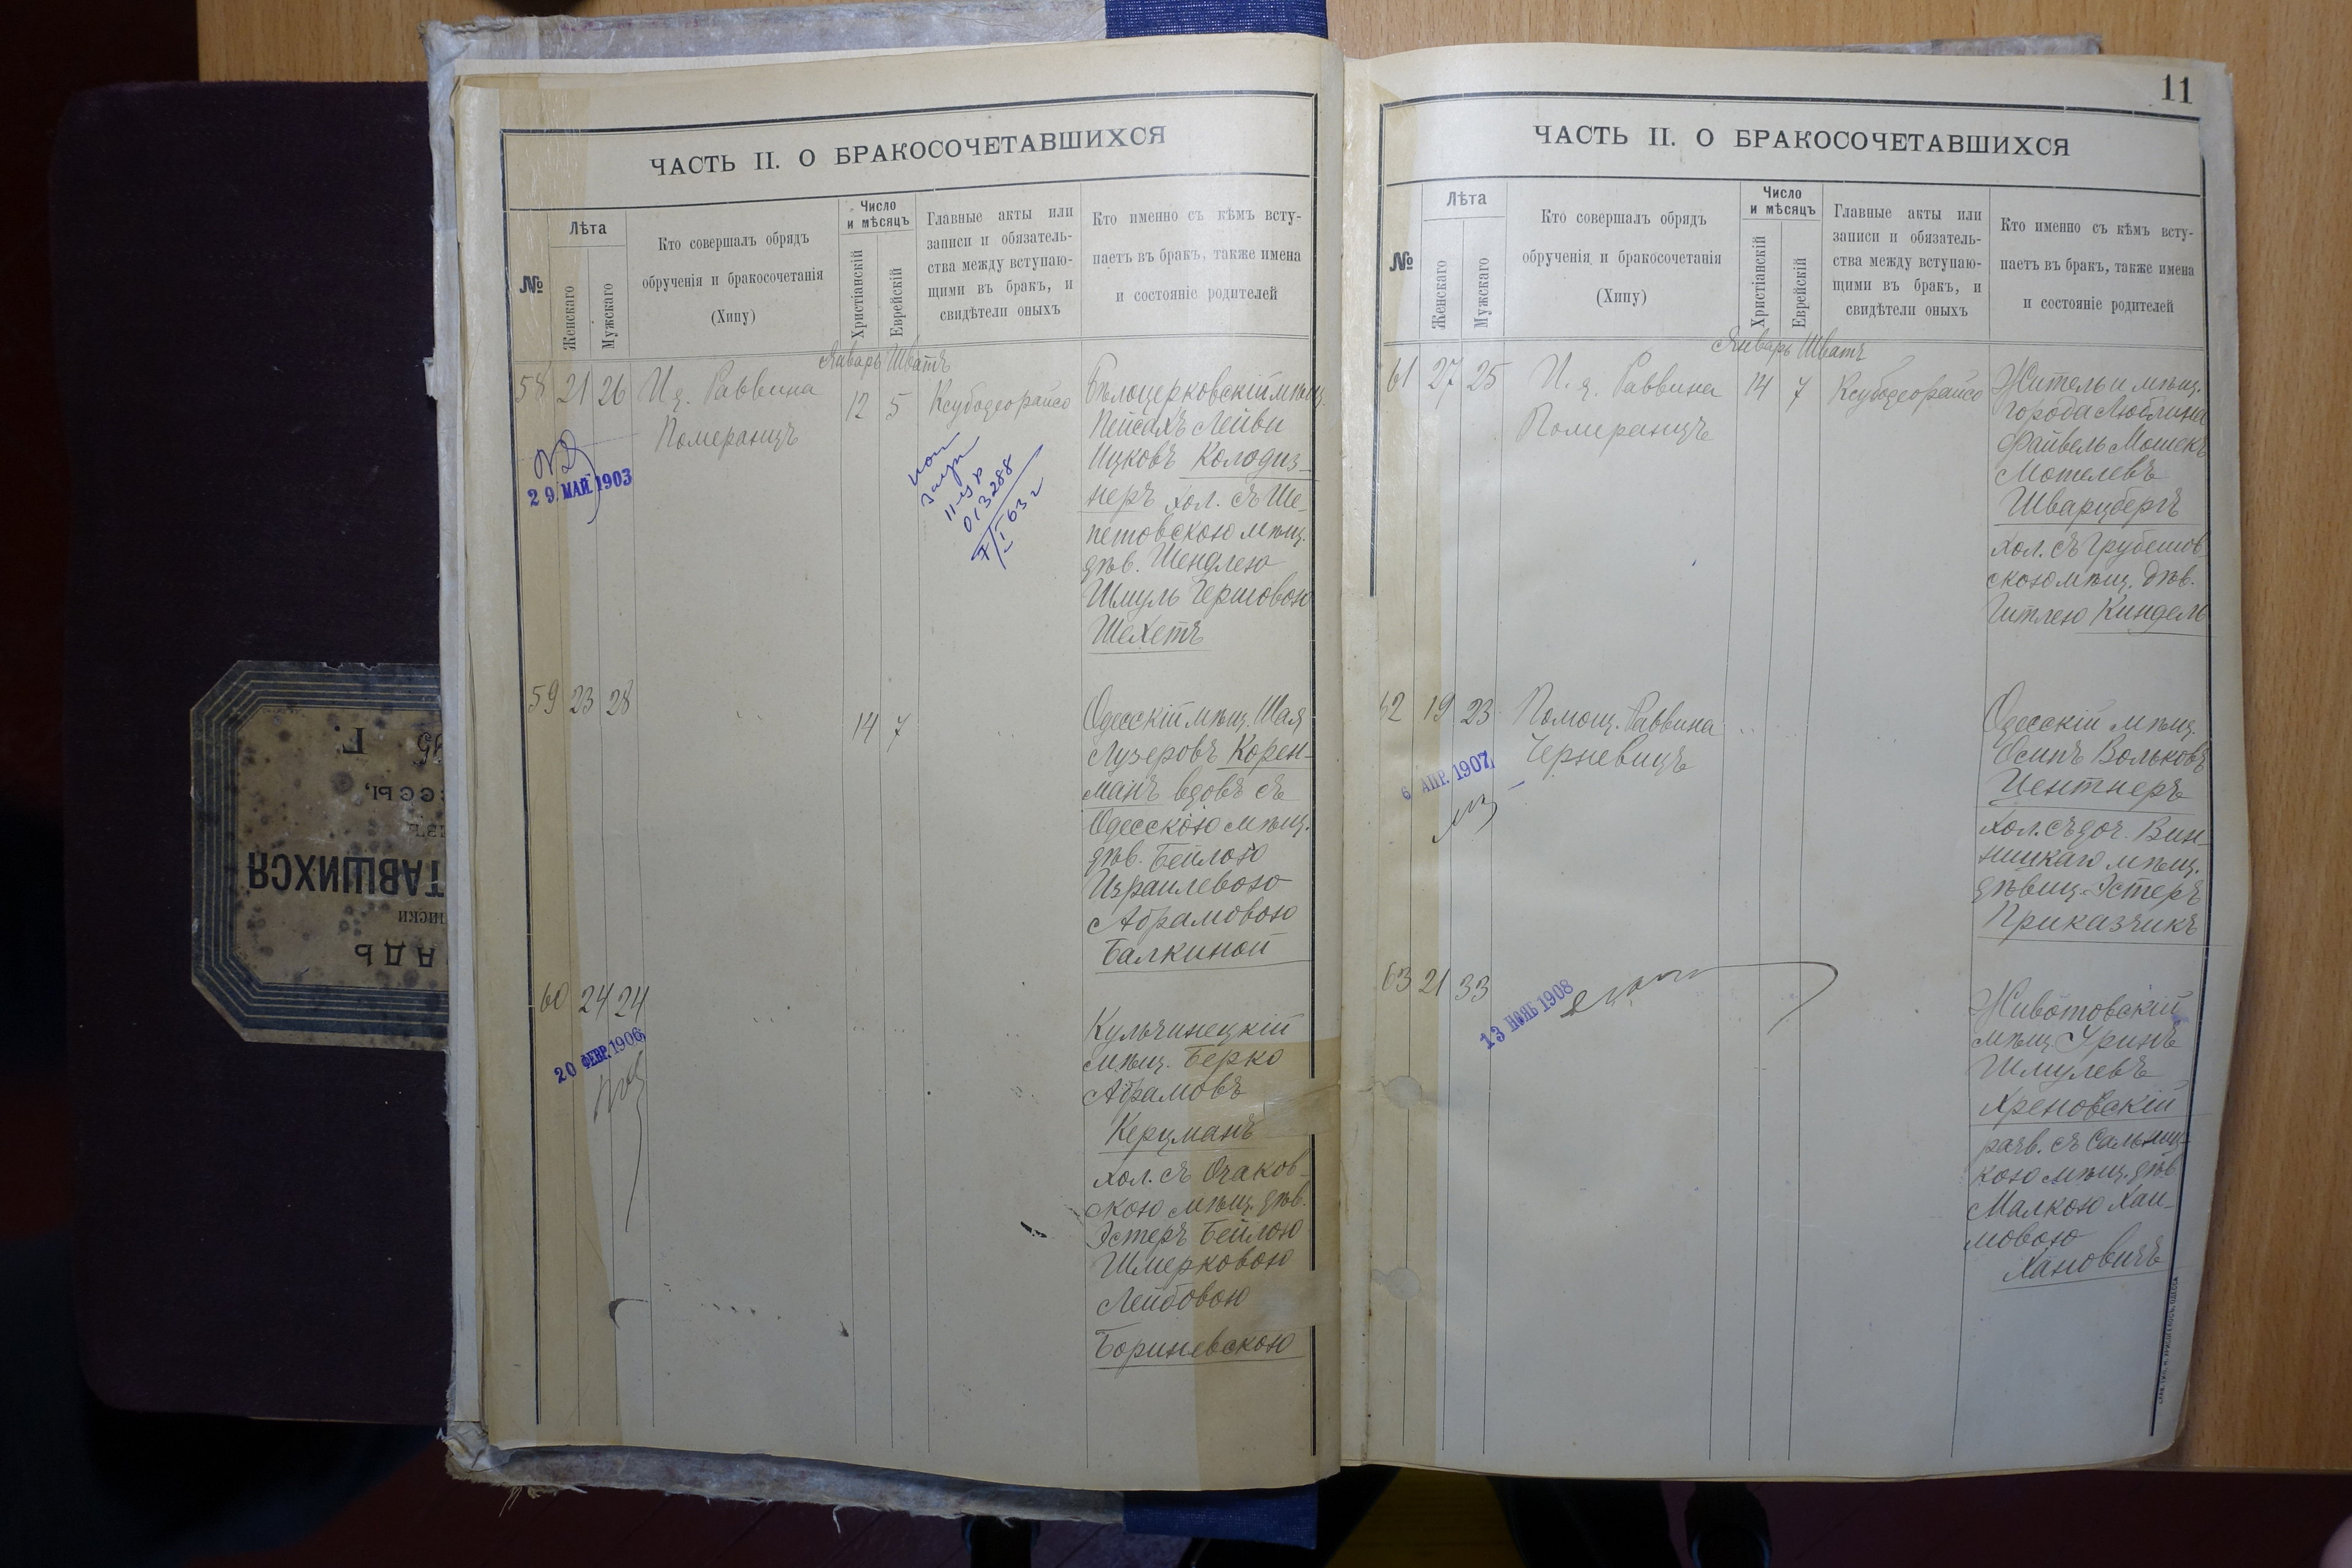 ЧАСТЬ II. О БРАКОСОЧЕТАВШИХСЯ
№
Лѣта
Женскаго
Мужскаго
Кто совершалъ обрядъ
обрученія и бракосочетанія
(Хипу)
Число
и мѣсяцъ
Христіанскій
Еврейскій
Главные акты или
записи и обязатель-
ства между вступаю-
щими въ бракъ, и
свидѣтели оныхъ
Кто именно съ кѣмъ всту-
паетъ въ бракъ, также имена
и состояніе родителей
Январь Шватъ
58 21 26 И. д. Раввина 12 5 Ксубодеорайсо
Померанцъ
29 МАЙ. 1903
013288
Бѣлоцерковскій мѣщ.
Пейсахъ Лейви
Ицковъ Колодиз-
неръ хол. съ Ше-
петовскою мѣщ.
дѣв. Шендлею
Шмуль Гершовою
Шехетъ
59 23 28 14 7
Одесскій мѣщ. Шая
Лузеровъ Корен-
манъ вдовъ съ
Одесскою мѣщ.
дѣв. Бейлою
Израилевою
Абрамовою
Балкиной
60 24 24
20 ФЕВР. 1906
Кульчинецкій
мѣщ. Берко
Абрамовъ
Керцманъ
хол. съ Очаков-
скою мѣщ. дѣв.
Эстеръ Бейлою
Шмерковою
Лейбовою
Бориневскою
11
ЧАСТЬ II. О БРАКОСОЧЕТАВШИХСЯ
№
Лѣта
Женскаго
Мужскаго
Кто совершалъ обрядъ
обрученія и бракосочетанія
(Хипу)
Число
и мѣсяцъ
Христіанскій
Еврейскій
Главные акты или
записи и обязатель-
ства между вступаю-
щими въ бракъ, и
свидѣтели оныхъ
Кто именно съ кѣмъ всту-
паетъ въ бракъ, также имена
и состояніе родителей
Январь Шватъ
61 27 25 И. д. Раввина 14 7 Ксубодеорайсо
Померанцъ
Житель и мѣщ.
города Люблина
Файвель Мошекъ
Мотелевъ
Шварцбергъ
хол. съ Грубешов-
скою мѣщ. дѣв.
Гитлею Киндель
62 19 23 Помощ. Раввина
Черневицъ
6 АПР. 1907
Одесскій мѣщ.
Осипъ Вольковъ
Центнеръ
хол. съ доч. Вин-
ницкаго мѣщ.
дѣвиц. Эстеръ
Приказчикъ
63 21 33
13 НОЯБ 1908
Животовскій
мѣщ. Уринъ
Шмулевъ
Хреновскій
разв. съ Сальниц-
кою мѣщ. дѣв.
Малкою Хаи-
мовою
Хановичъ
ТАВШИХСЯ
АДЬ